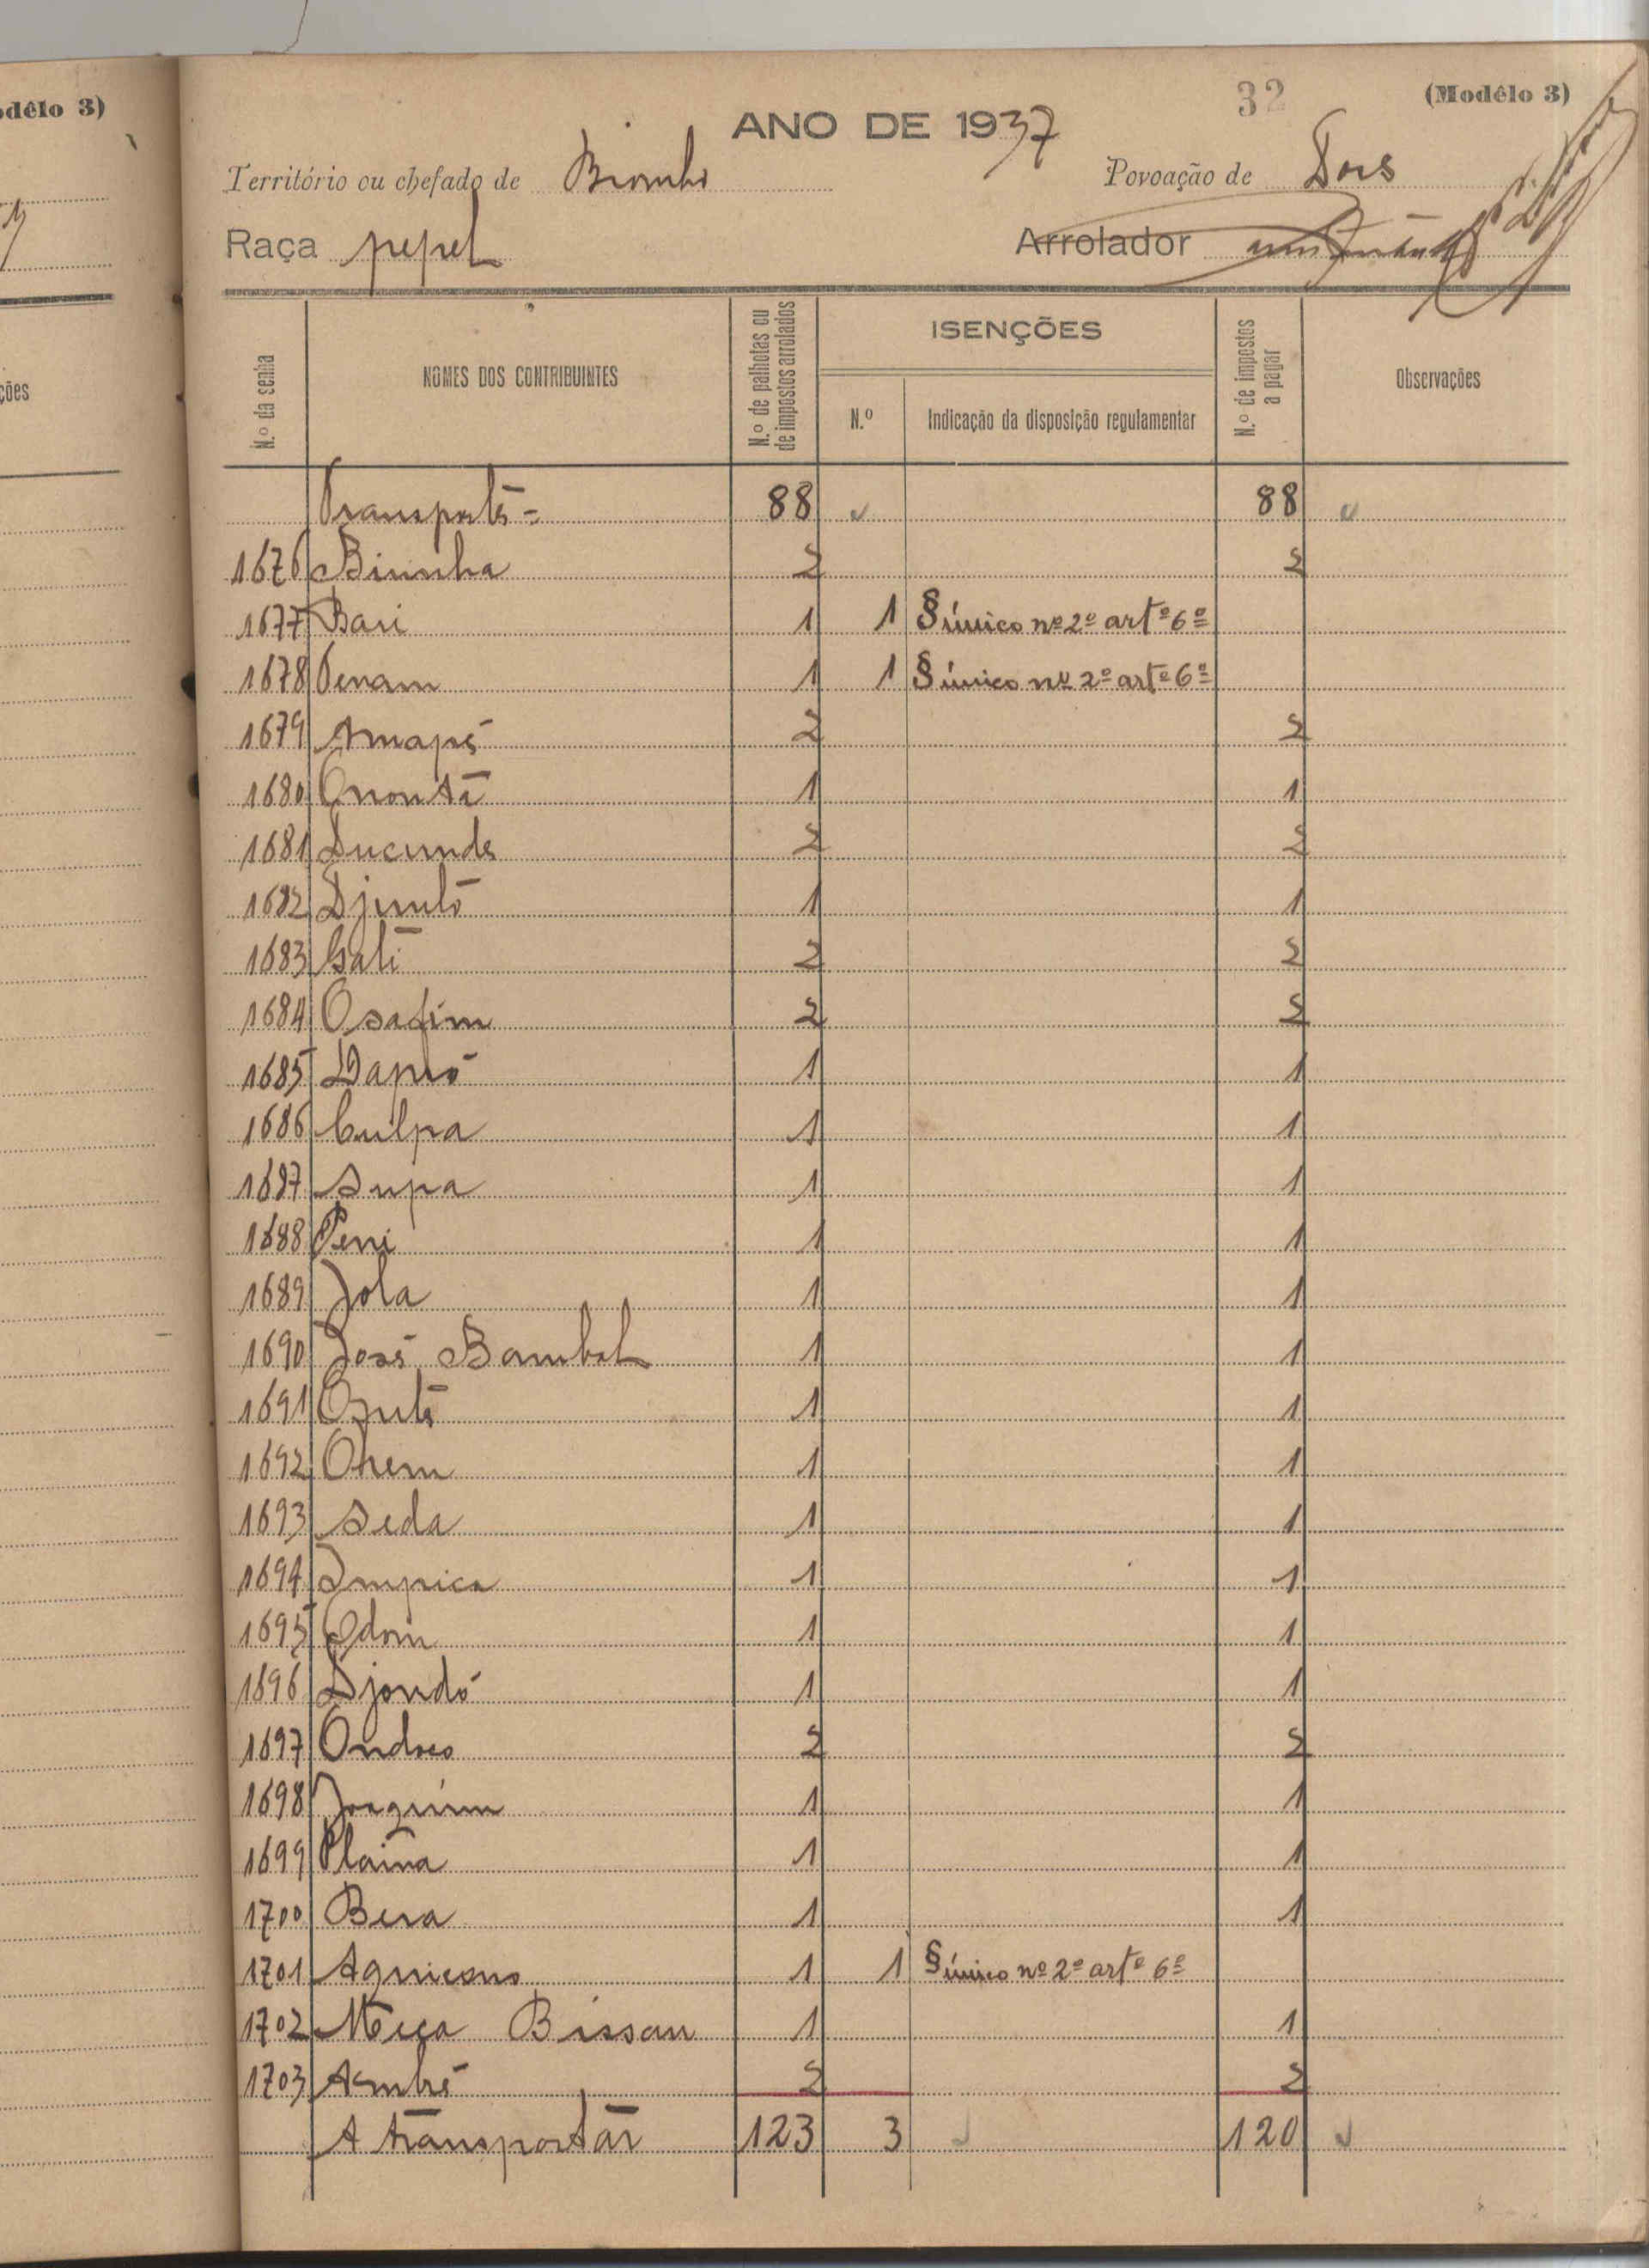 delo 3)
ções
32
(Modêlo 3)
ANO DE 1937
Território ou chefado de Biombo Povoação de Dois
Raça pepel Arrolador
N.º da senha
NOMES DOS CONTRIBUINTES
N.º de palhotas ou de impostos arrolados
ISENÇÕES
N.º
Indicação da disposição regulamentar
N.º de impostos a pagar
Observações
Transporte = 88 88
1676 Binnha 2 2
1677 Bari 1 1 § único nº 2º artº 6º
1678 Penam 1 1 § único nº 2º artº 6º
1679 Amapé 2 2
1680 Ononta 1 1
1681 Ducunde 2 2
1682 Djuntó 1 1
1683 Gati 2 2
1684 Osafim 2 2
1685 Dapró 1 1
1686 Culpa 1 1
1687 Supa 1 1
1688 Peni 1 1
1689 Jola 1 1
1690 José Bambal 1 1
1691 Osuté 1 1
1692 Ohem 1 1
1693 Seda 1 1
1694 Impica 1 1
1695 Odom 1 1
1696 Djondó 1 1
1697 Ondoco 2 2
1698 Joaquim 1 1
1699 Plaina 1 1
1700 Bera 1 1
1701 1 1 § único nº 2º artº 6º
1702 Meça Bissau 1 1
1703 Ambré 2 2
A transportar 123 3 120